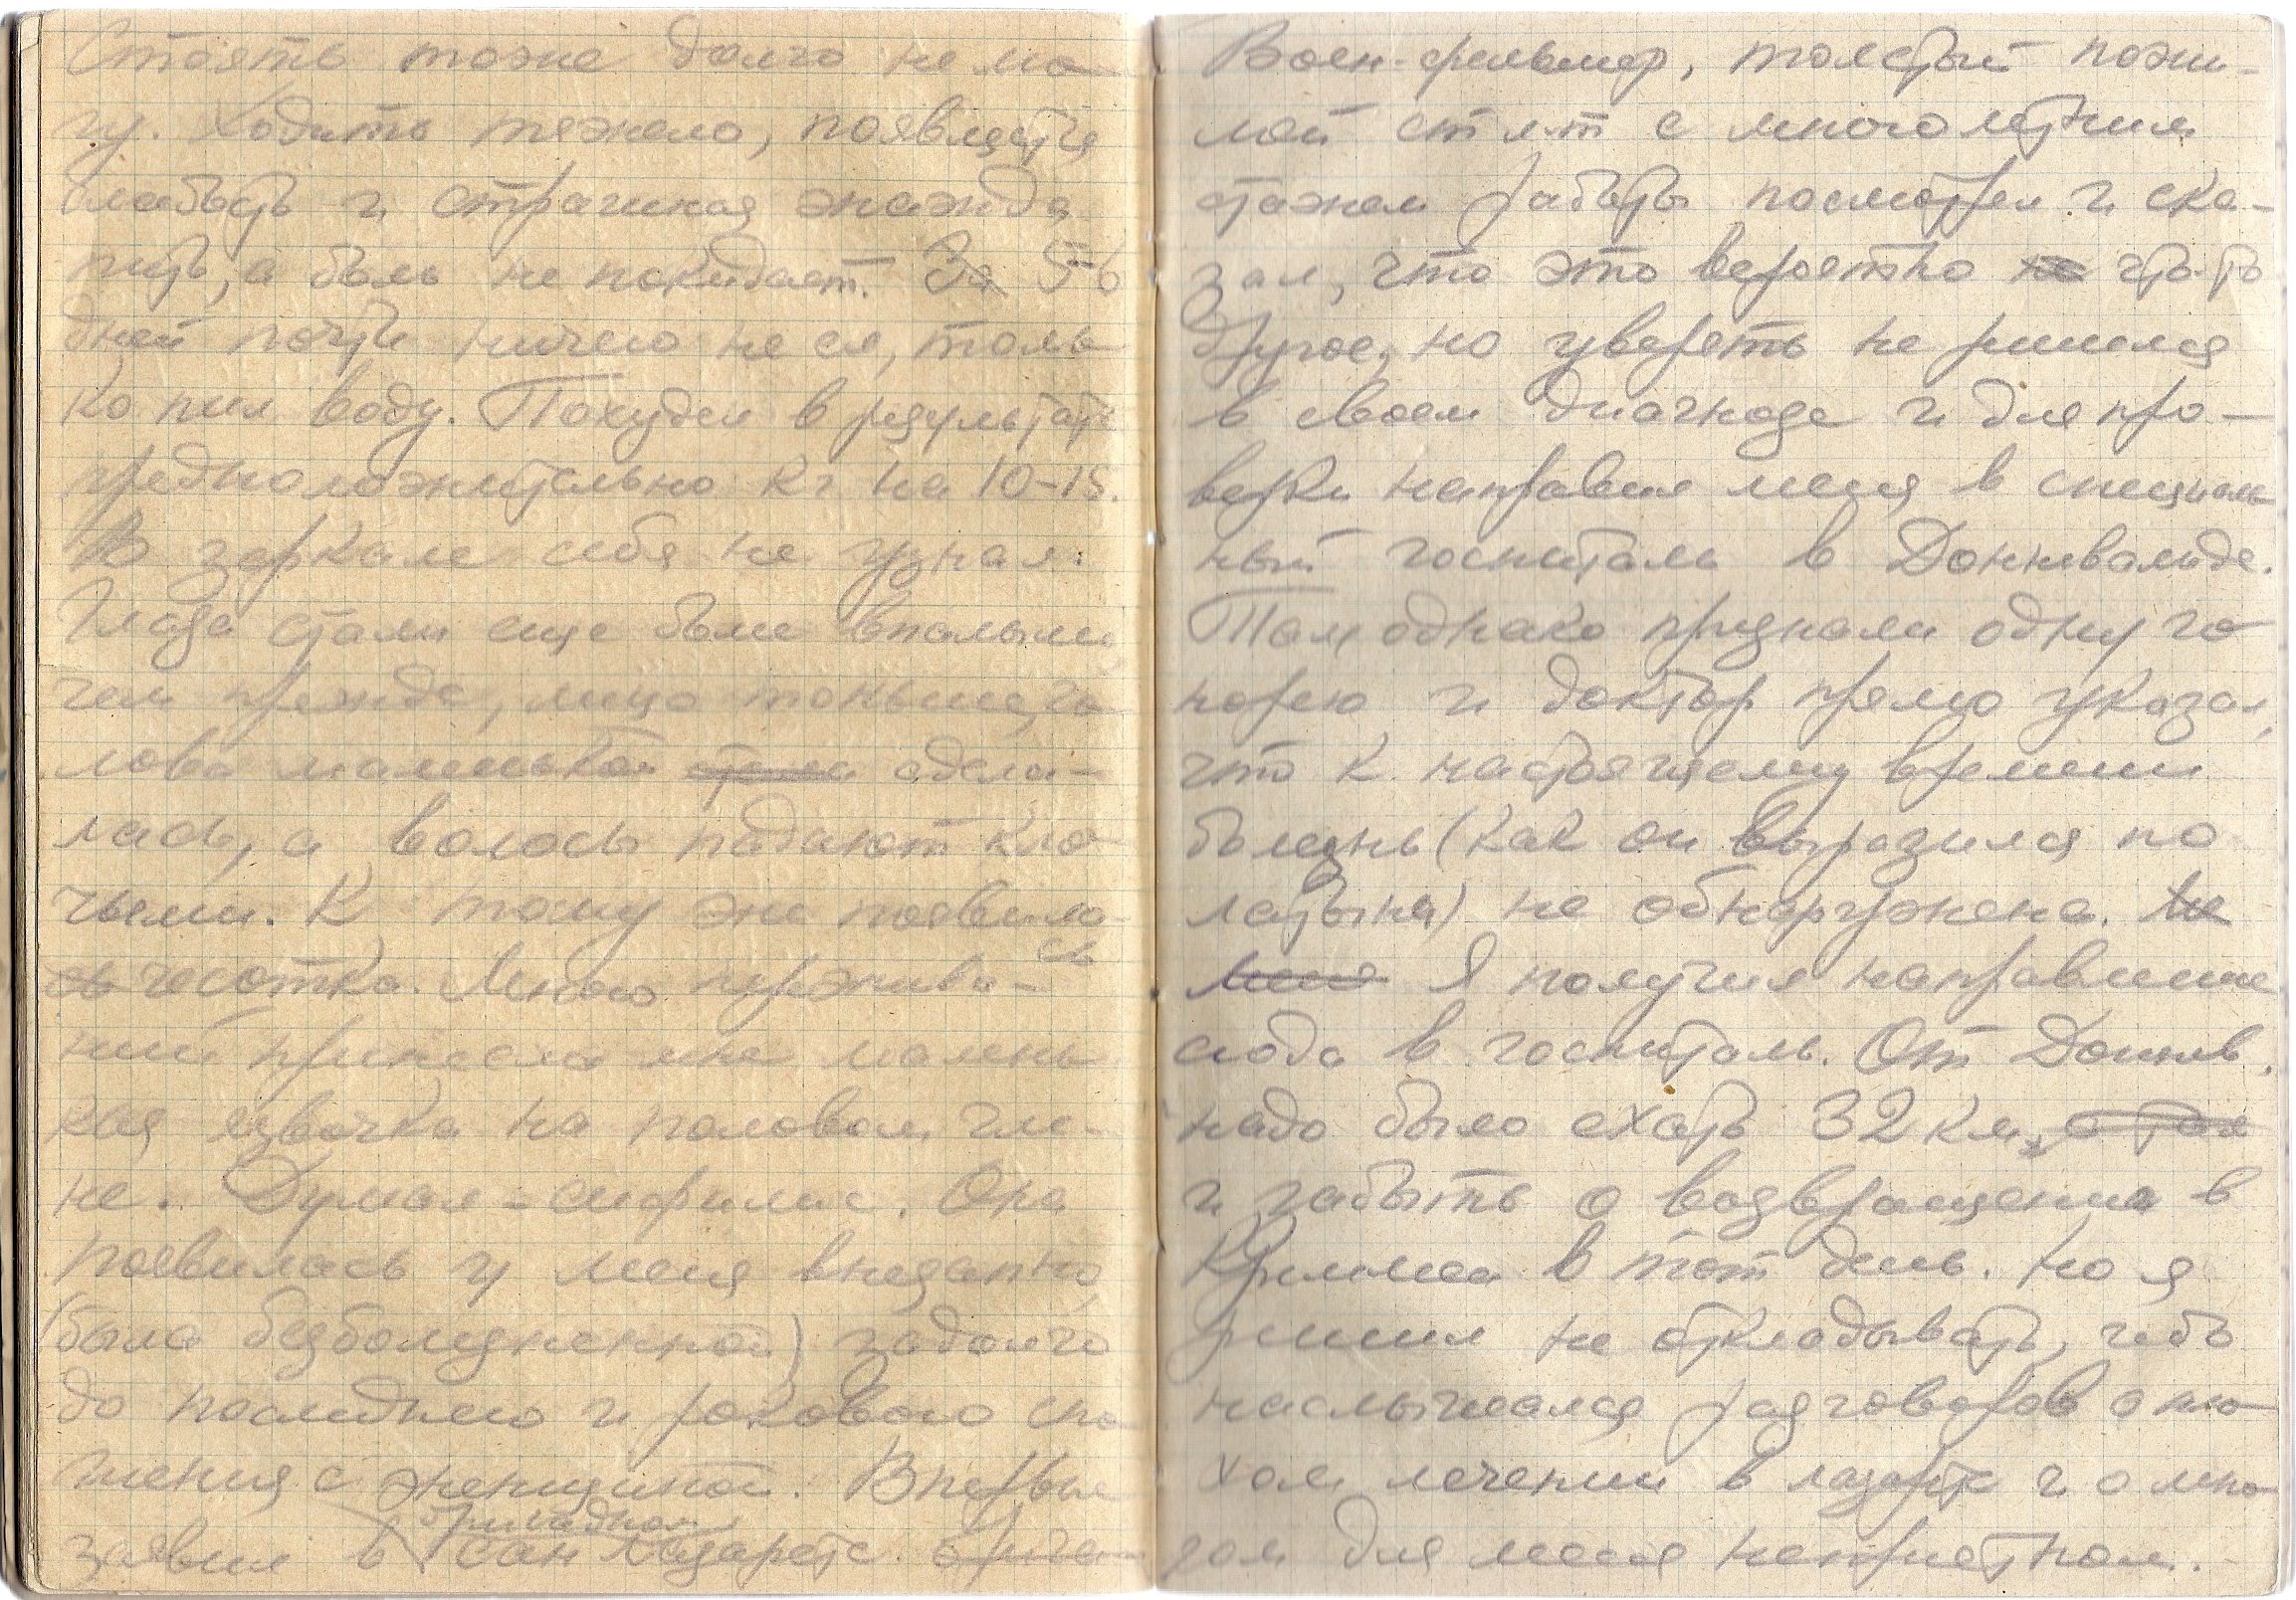 Стоять тоже долго не мо-
гу. Ходить тяжело, появляется
слабость и страшная жажда
пить, а боль не покидает. За 5-6
дней почти ничего не ел, толь-
ко пил воду. Похудел в результате
предположительно кг на 10-15.
В зеркале себя не узнал.
Глаза стали еще более впалыми
чем прежде, лицо тоньше, го-
лова маленькой стала сдела-
лась, а волосы падают кло-
чьями. К тому же появила-
сь
сь чесотка. Много пережива-
ний принесла мне малень-
кая язвочка на половом чле-
не. Думал - сифилис. Она
появилась у меня внезапно,
(была безболезненной) задолго
до последнего и рокового сно-
шения с женщиной. Впервые
бригадном
заявил в сан лазарете брига-
Воен-фельдшер, толстый пожи-
лой ст л-т с многолетним
стажем работы посмотрел и ска-
зал, что это вероятно не что-то
другое, но уверять не решился
в своем диагнозе и для про-
верки направил меня в специаль-
ный госпиталь в Доннвальде.
Там однако признали одну го-
норею и доктор прямо указал,
что к настоящему времени
болезнь (как он выразился по
латыни) не обнаружена. Ме
Меня Я получил направление
сюда в госпиталь. От Доннв.
надо было ехать 32 км,
и забыть о возвращении в
Криммен в тот день. Но я
решил не откладывать, ибо
наслышался разговоров о пло-
хом лечении в лазарете и о мно-
гом для меня неприятном.